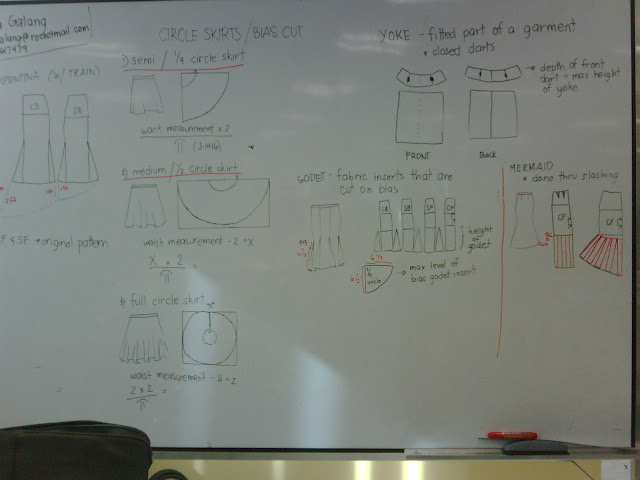 Galang
alang@rocketmail.com
SERPENTINA (W/ TRAIN)
CB
SB
CF & SF → original pattern
CIRCLE SKIRTS / BIAS CUT
1) semi / 1/4 circle skirt
waist measurement x 2
π (3.1416)
2) medium / 1/2 circle skirt
waist measurement - 2 = x
x x 2
π
3) full circle skirt
waist measurement - 4 = 2
2 x 2 =
π
YOKE - fitted part of a garment
+ closed darts
→ depth of front
dart = max height
of yoke
FRONT
Back
GODET - fabric inserts that are
cut on bias
CB
SB
SF
CF
height
of
godet
6 1/2
6 1/2
6 1/2
1/4
circle
→ max level of
bias godet insert
MERMAID
+ done thru slashing
CF
CF